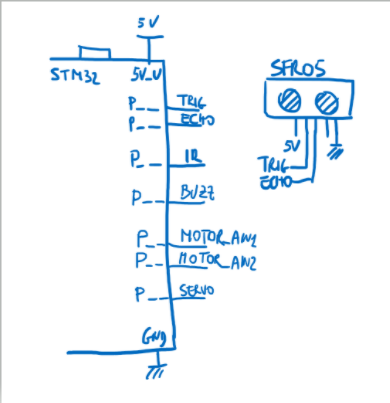 5V
STM32 5V_U
P__ TRIG
P__ ECHO
P__ IR
P__ BUZZ
P__ MOTOR_AW1
P__ MOTOR_AW2
P__ SERVO
GND
SFR05
5V
TRIG
ECHO